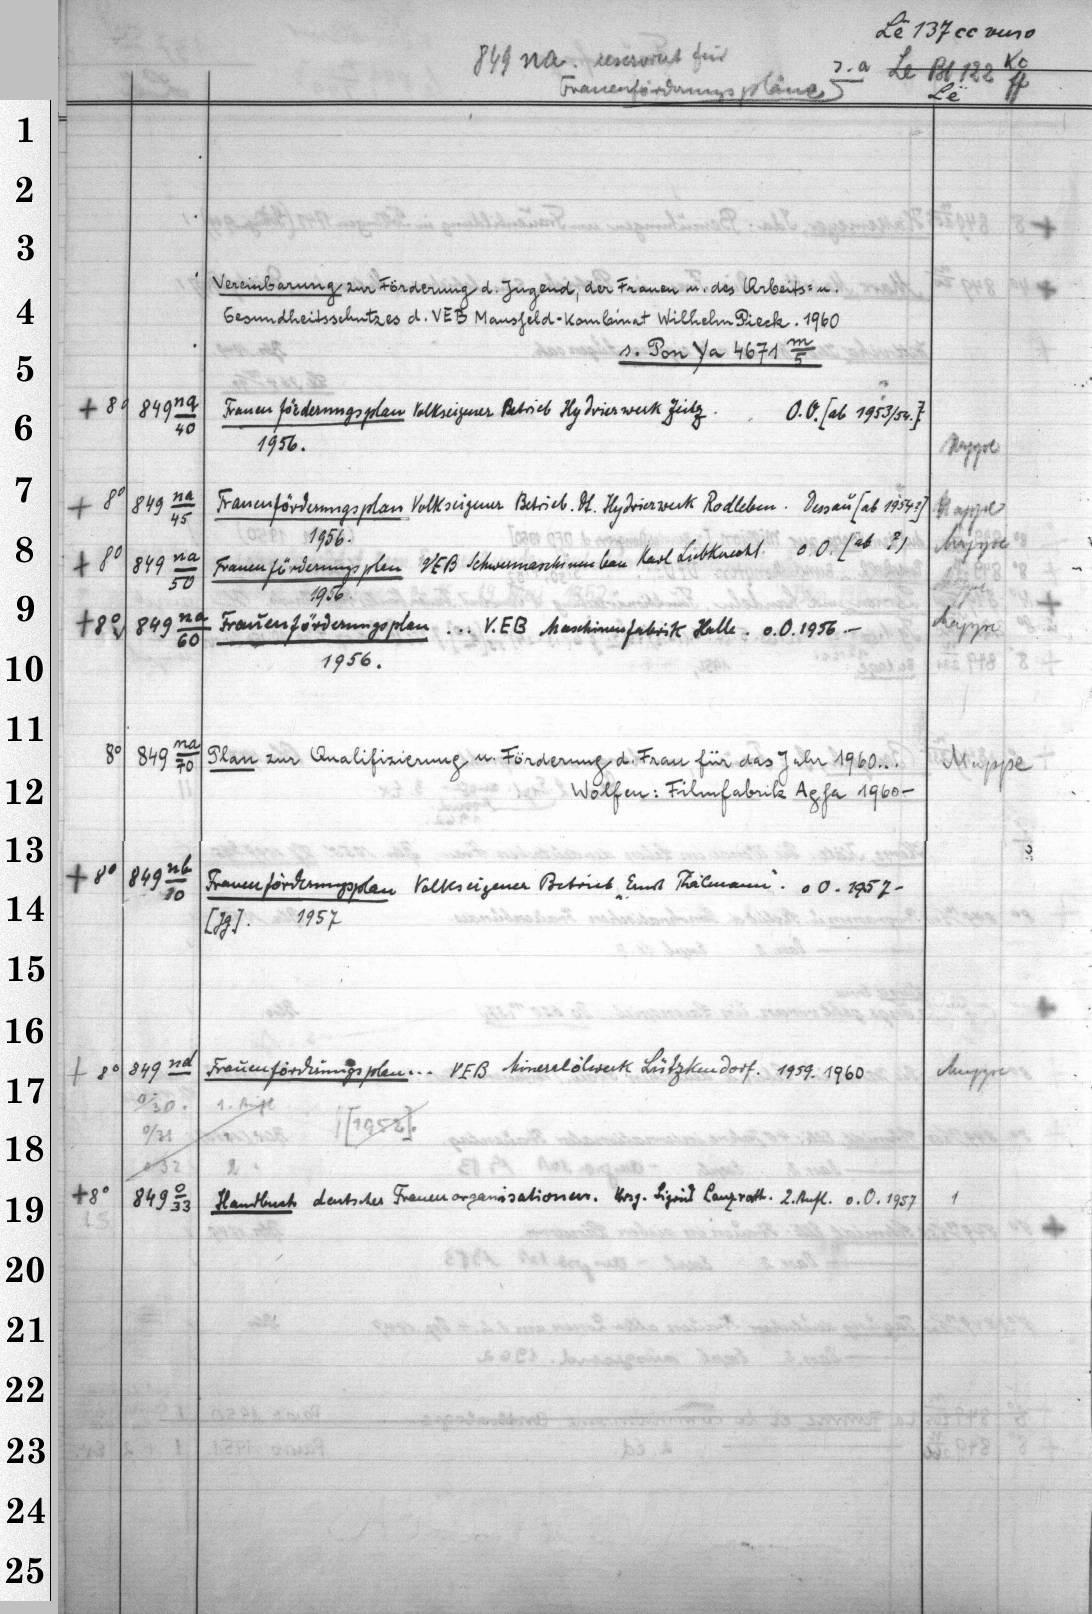 Lë 137 cc verso
849 na. reserviert für s. a Le Bl 122 Kc ff
Frauenförderungspläne Lë
1
2
3
Vereinbarung zur Förderung d. Jugend, der Frauen u. des Arbeits= u.
4 Gesundheitsschutzes d. VEB Mansfeld-Kombinat Wilhelm Pieck. 1960
5 s. Pon Ya 4671 m/5
+ 8° 849 na/40 Frauenförderungsplan Volkseigener Betrieb Hydrierwerk Zeitz. O.O. [ab 1953/54.]
6 1956. Mappe
7 + 8° 849 na/45 Frauenförderungsplan Volkseigener Betrieb. Dt. Hydrierwerk Rodleben. Dessau [ab 1954?] Mappe
1956.
8 + 8° 849 na/50 Frauenförderungsplan VEB Schwermaschinenbau Karl Liebknecht. o. O. [ab ?) Mappe
1956.
9 + 8° 849 na/60 Frauenförderungsplan ... V.EB Maschinenfabrik Halle. o.O. 1956 — Mappe
10 1956.
11
8° 849 na/70 Plan zur Qualifizierung u. Förderung d. Frau für das Jahr 1960... Mappe
12 Wolfen: Filmfabrik Agfa 1960—
13
+ 8° 849 nb/10 Frauenförderungsplan Volkseigener Betrieb "Ernst Thälmann". o O. 1957—
14 [Jg]. 1957
15
16
17 + 8° 849 nd Frauenförderungsplan... VEB Mineralölwerk Lützkendorf. 1959. 1960 Mappe
o/30. 1. Aufl
18 o/31 [1952].
o 32 2.
19 + 8° 849 o/33 Handbuch deutscher Frauenorganisationen. Hrsg. Sigrid 2. Aufl. o. O. 1957 1
20
21
22
23
24
25